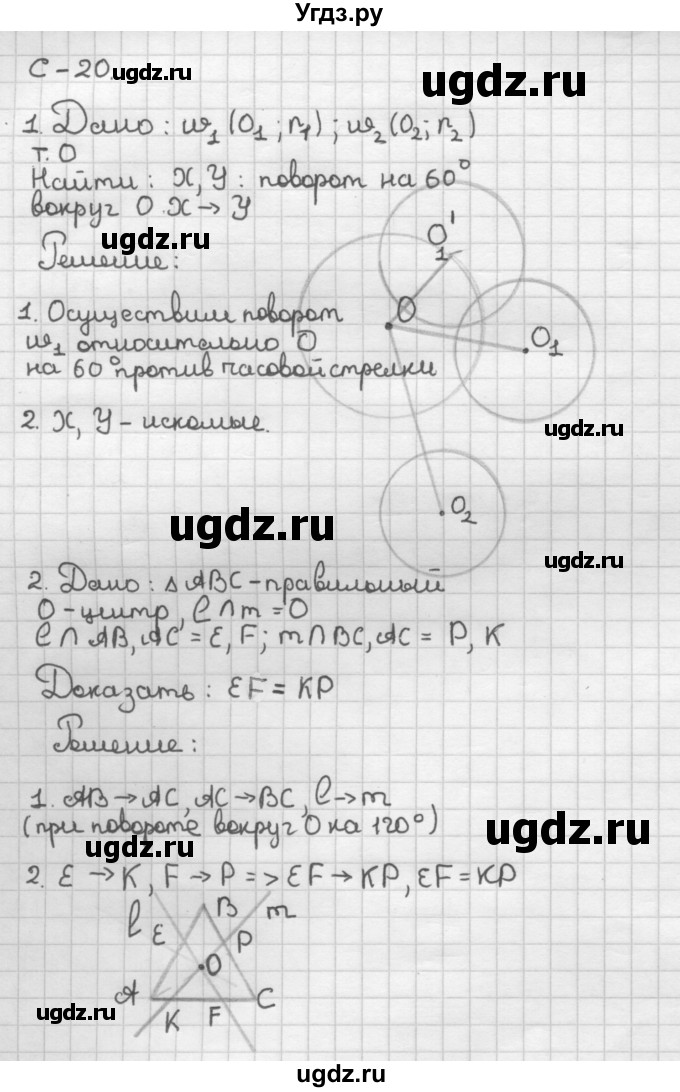 Угдз.ру
С-20
ugdz.ru
ugdz.ru
1. Дано: w₁ (O₁; r₁); w₂ (O₂; r₂)
т. О
Найти: X, Y: поворот на 60°
вокруг О X→Y
ugdz.ru
Решение:
O₁'
O
O₁
1. Осуществим поворот
w₁ относительно О
на 60° против часовой стрелки
2. X, Y – искомые.
ugdz.ru
O₂
ugdz.ru
ugdz.ru
2. Дано: △ABC – правильный
О – центр, l∩m = О
l∩AB, AC = E, F; m∩BC, AC = P, K
Доказать: EF = KP
Решение:
1. AB→AC, AC→BC, l→m
(при повороте вокруг О на 120°)
ugdz.ru
ugdz.ru
2. E→K, F→P => EF→KP, EF=KP
l E B P m
O
A K F C
ugdz.ru
ugdz.ru